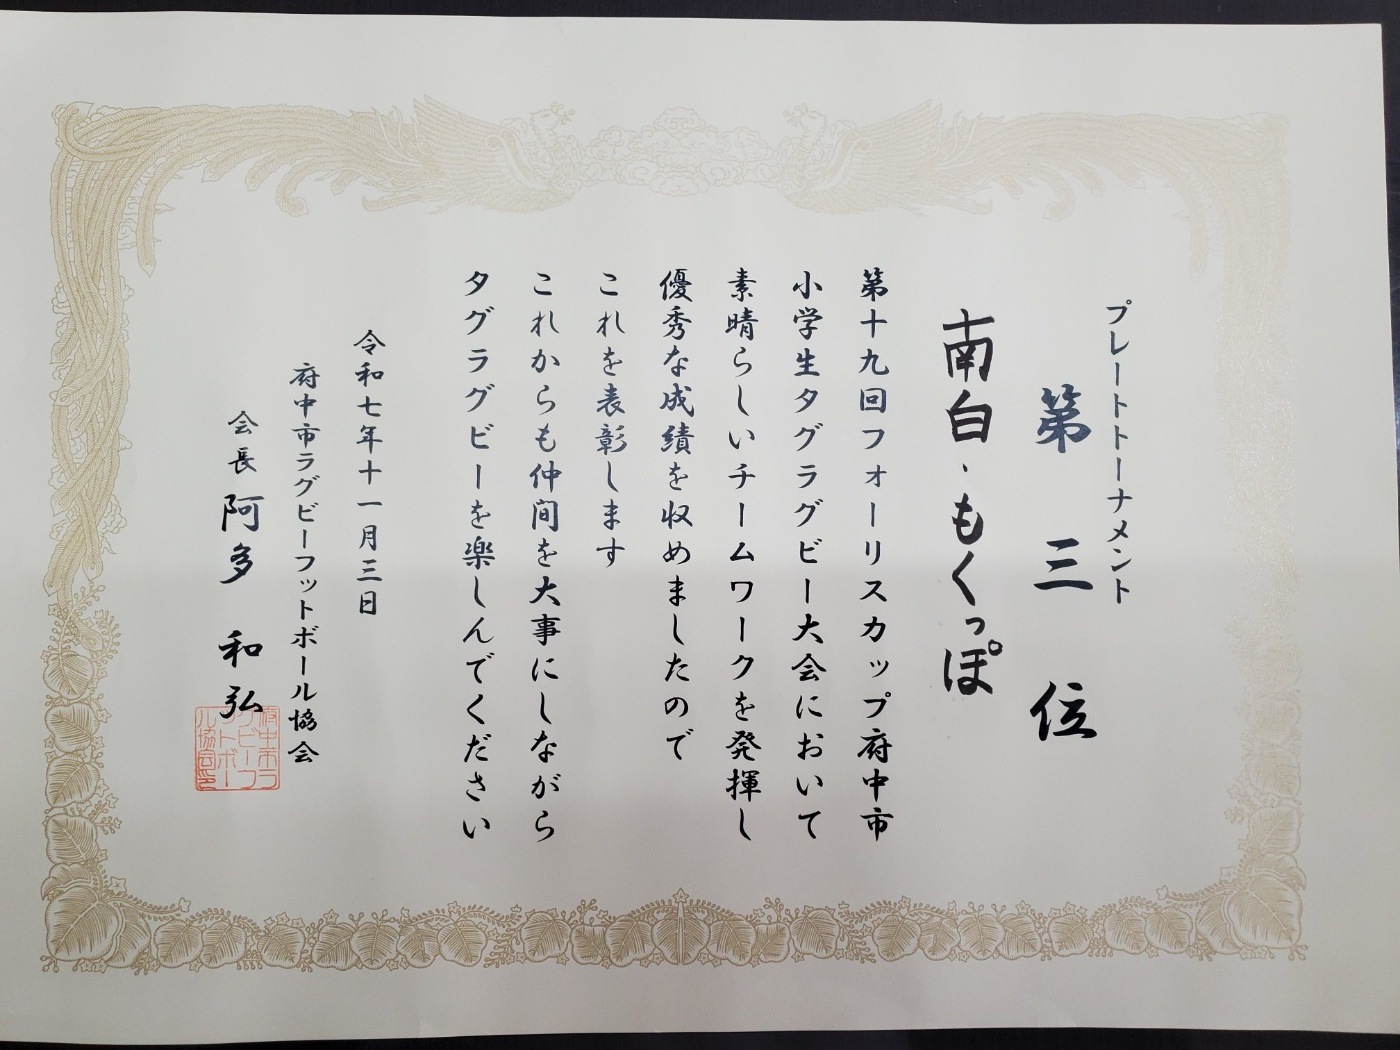 プレートトーナメント
第三位
南白、もくっぽ
第十九回フォーリスカップ府中市
小学生タグラグビー大会において
素晴らしいチームワークを発揮し
優秀な成績を収めましたので
これを表彰します
これからも仲間を大事にしながら
タグラグビーを楽しんでください
令和七年十一月三日
府中市ラグビーフットボール協会
会長 阿多 和弘
府中市ラ
グビーフ
ットボー
ル協会印